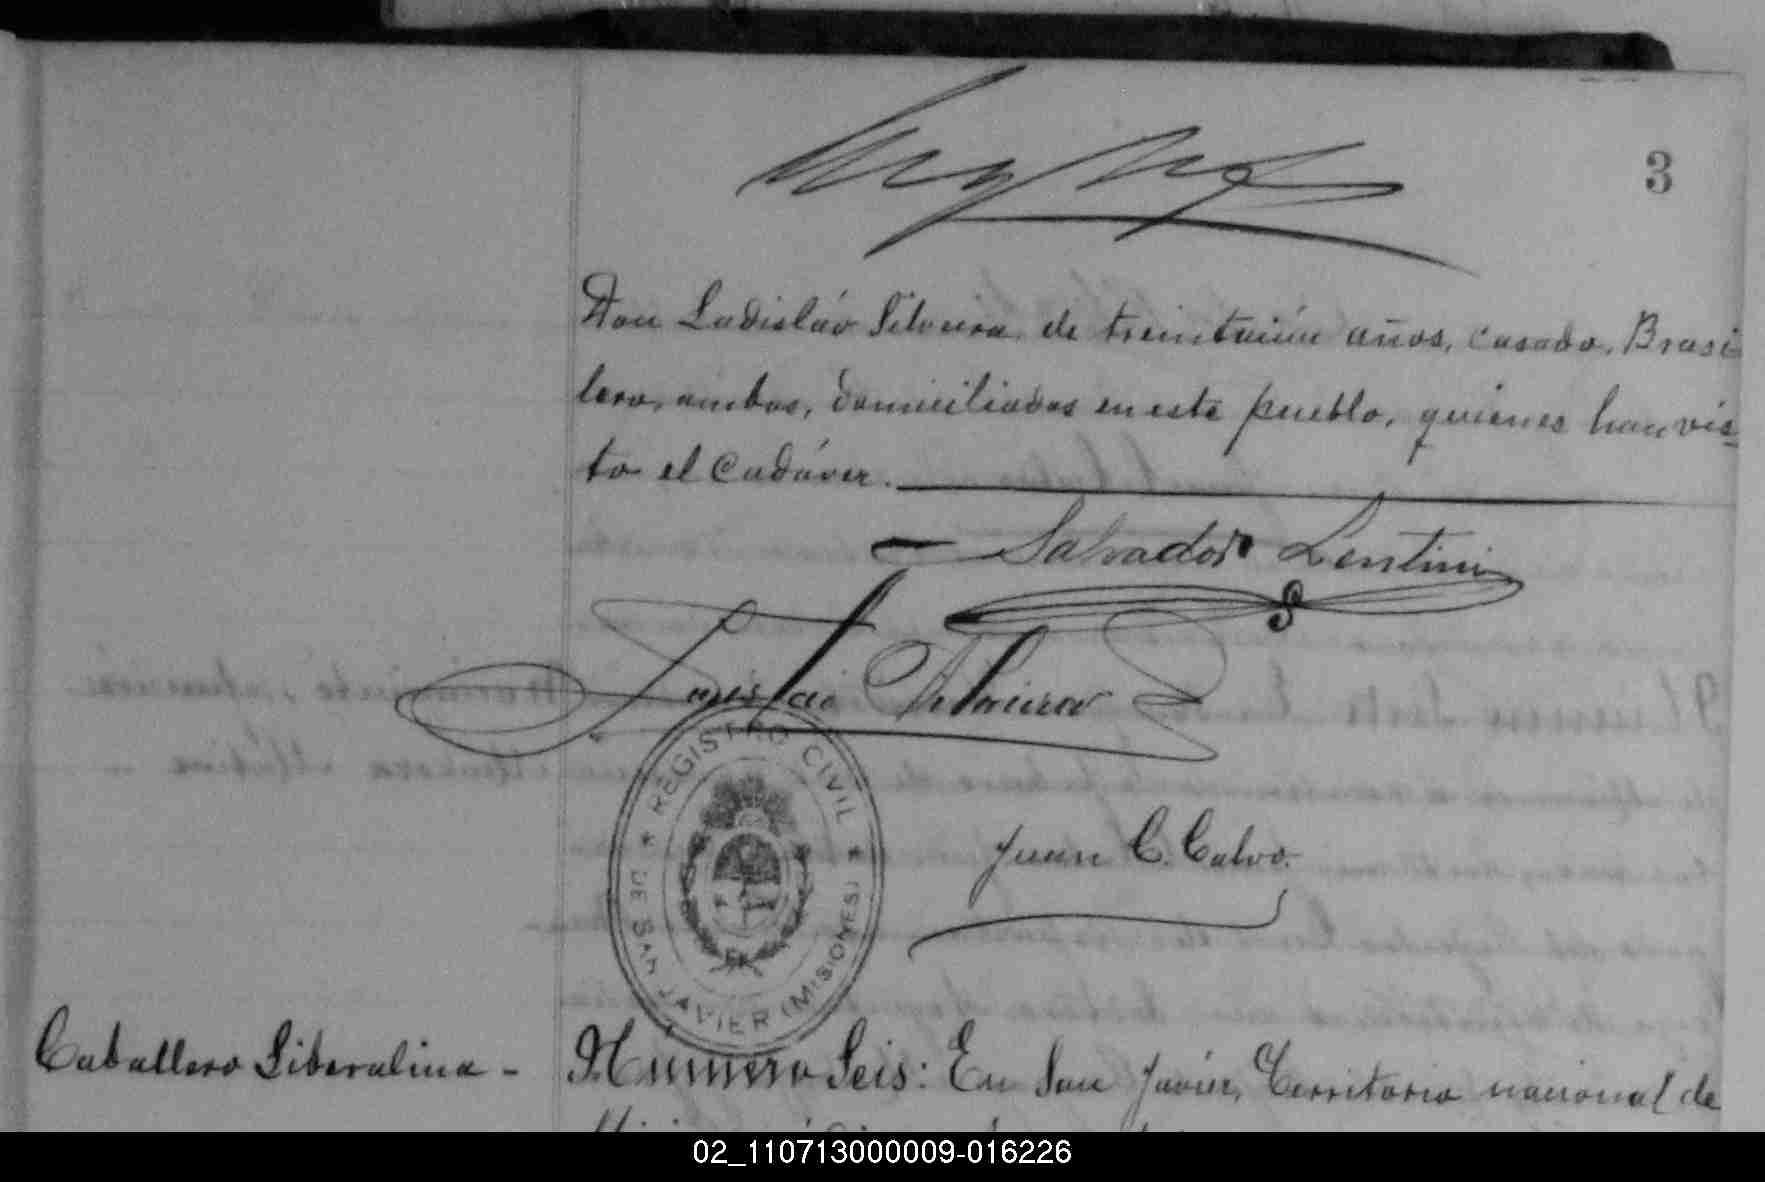 3
Don Ladisláo Silveira, de treintaiún años, casado, Brasi
lero, ambos, domiciliados en este pueblo, quienes han vis-
to el cadáver.
Salvador Lentini
S
Silveira
REGISTRO CIVIL
DE SAN JAVIER (MISIONES)
Juan C. Calvo.
Caballero Liberalina - Número Seis: En San Javier, Territorio nacional de
02_110713000009-016226